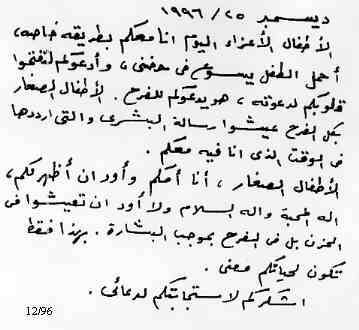 ديسمبر ٢٥ / ١٩٩٦
الأطفال الأعزاء اليوم انا معكم بطريقه خاصه،
أحمل الطفل يسوع فى حضنى، وأدعوكم لتفتحوا
قلوبكم لدعوته، هو يدعوكم للفرح. الأطفال الصغار
بكل الفرح عيشوا رسالة البشرى والتى ارددها
فى الوقت الذى انا فيه معكم.
الأطفال الصغار، أنا أمكم وأود ان أظهر لكم،
اله المحبة واله السلام ولا أود ان تعيشوا فى
الحزن بل فى الفرح بموجب البشارة. بهذا فقط
تكون لحياتكم معنى.
اشكركم لاستجابتكم لدعائى.
12/96